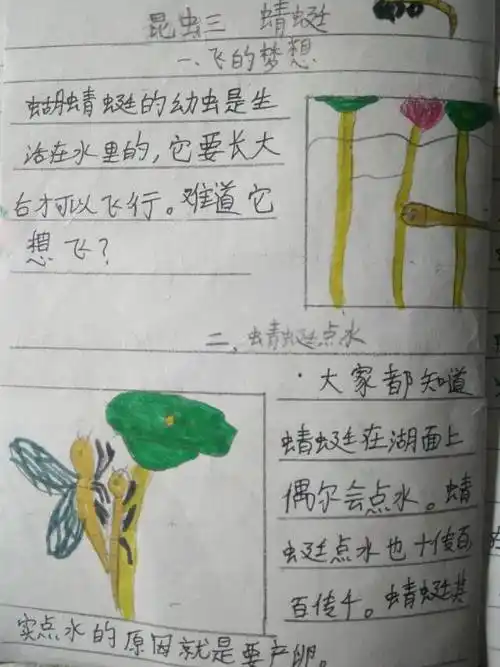 昆虫三 蜻蜓
一、飞的梦想
蝴蜻蜓的幼虫是生
活在水里的,它要长大
后才可以飞行。难道它
想飞?
二、蜻蜓点水
大家都知道
蜻蜓在湖面上
偶尔会点水。蜻
蜓点水也十传百
百传千。蜻蜓其
实点水的原因就是要产卵。